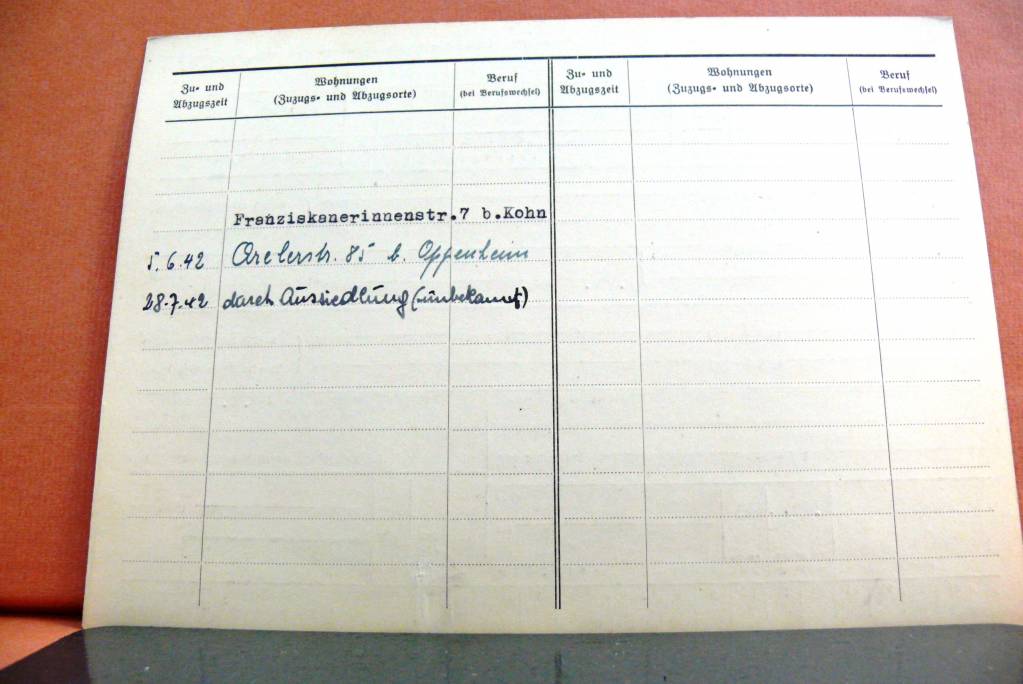 Zu- und
Abzugszeit
Wohnungen
(Zuzugs- und Abzugsorte)
Beruf
(bei Berufswechsel)
Zu- und
Abzugszeit
Wohnungen
(Zuzugs- und Abzugsorte)
Beruf
(bei Berufswechsel)
Franziskanerinnenstr.7 b.Kohn
5.6.42 Arelerstr. 85 b. Oppenheim
28.7.42 durch Aussiedlung (unbekannt)